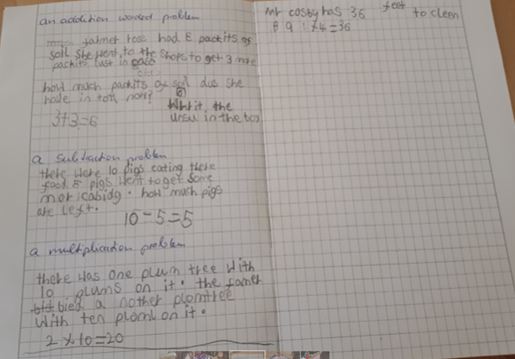 an addition worded problem
farmer rose had 5 packits of
soil she went to the shops to get 3 more
packits Just in case
how much packits of soil dus she
have in totl now?
Whrit, the
in the box
3+3=6
a subtraction problem
there were 10 pigs eating there
food 5 pigs went to get some
mor . how much pigs
are left.
10-5=5
a multiplication problem
there was one plum tree with
10 plums on it. the farmer
bied a nother plomtree
with ten ploms on it.
2 x 10=20
Mr cosby has 36 feet to cleen
9 x4=36